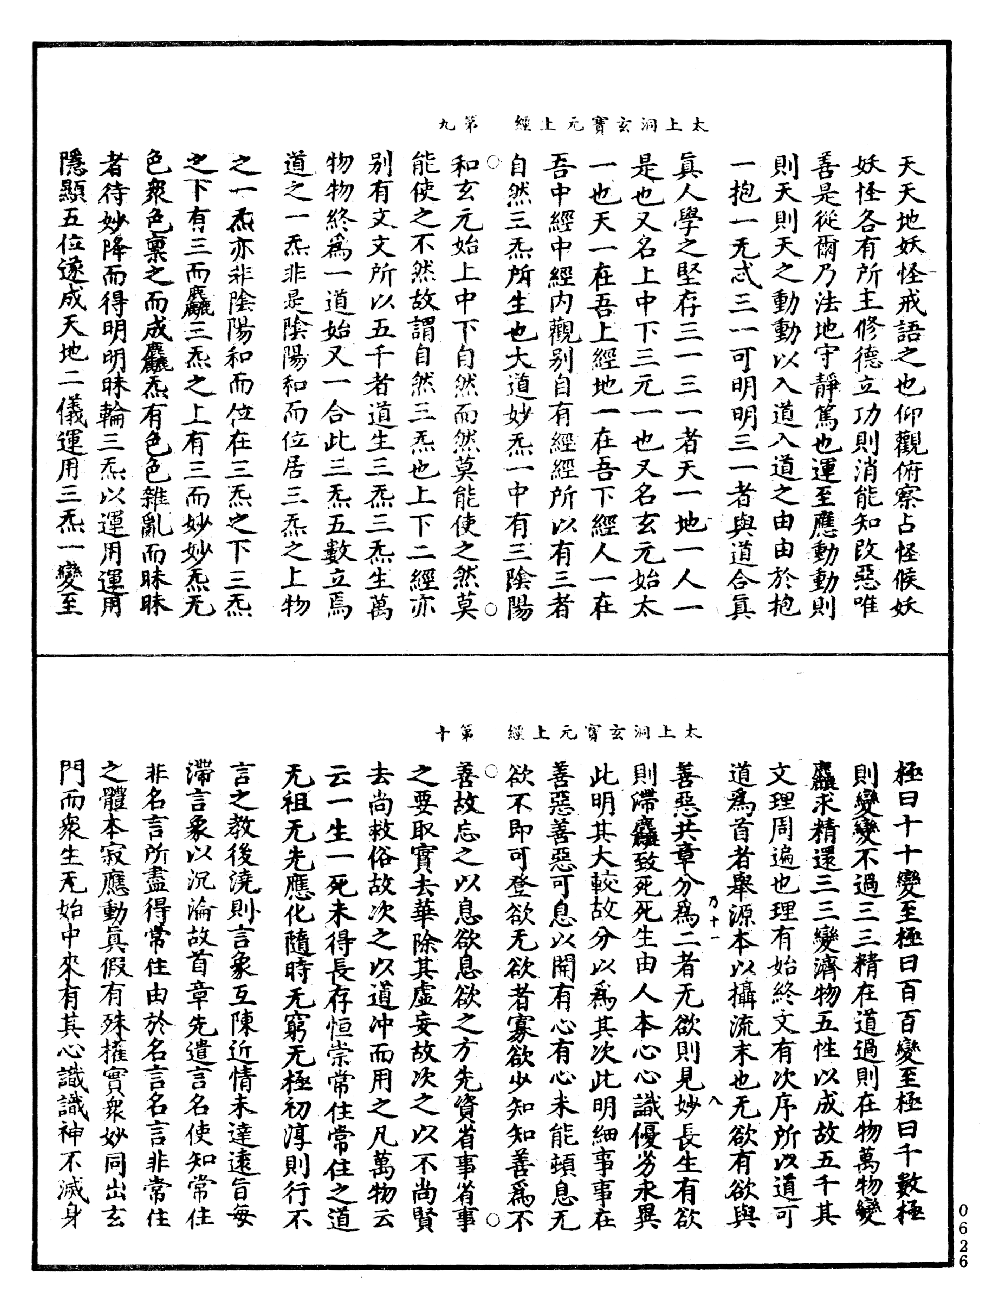 太上洞玄寶元上經　第九
天天地妖怪戒語之也仰觀俯察占怪候妖
妖怪各有所主修德立功則消能知改惡唯
善是從爾乃法地守靜篤也運至應動動則
則天則天之動動以入道入道之由由於抱
一抱一无忒三一可明明三一者與道合眞
眞人學之堅存三一三一者天一地一人一
是也又名上中下三元一也又名玄元始太
一也天一在吾上經地一在吾下經人一在
吾中經中經內觀別自有經經所以有三者
自然三炁所生也大道妙炁一中有三陰陽
和玄元始上中下自然而然莫能使之然莫
能使之不然故謂自然三炁也上下二經亦
別有文文所以五千者道生三炁三炁生萬
物物終爲一道始又一合此三炁五數立焉
道之一炁非是陰陽和而位居三炁之上物
之一炁亦非陰陽和而位在三炁之下三炁
之下有三而麤麤三炁之上有三而妙妙炁无
色衆色稟之而成麤炁有色色雜亂而昧昧
者待妙降而得明明昧輪三炁以運用運用
隱顯五位遂成天地二儀運用三炁一變至
太上洞玄寶元上經　第十
極曰十十變至極曰百百變至極曰千數極
則變變不過三三精在道過則在物萬物變
麤求精還三三變濟物五性以成故五千其
文理周遍也理有始終文有次序所以道可
道爲首者舉源本以攝流末也无欲有欲與
善惡共章分爲二者无欲則見妙長生有欲
則滯麤致死死生由人本心心識優劣永異
此明其大較故分以爲其次此明細事事在
善惡善惡可息以開有心有心未能頓息无
欲不即可登欲无欲者寡欲少知知善爲不
善故忘之以息欲息欲之方先資省事省事
之要取實去華除其虛妄故次之以不尚賢
去尚救俗故次之以道沖而用之凡萬物云
云一生一死未得長存恒崇常住常住之道
无祖无先應化隨時无窮无極初淳則行不
言之教後澆則言象互陳近情未達遠旨每
滯言象以沉淪故首章先遣言名使知常住
非名言所盡得常住由於名言名言非常住
之體本寂應動眞假有殊權實衆妙同出玄
門而衆生无始中來有其心識識神不滅身
乃十一　八
0626